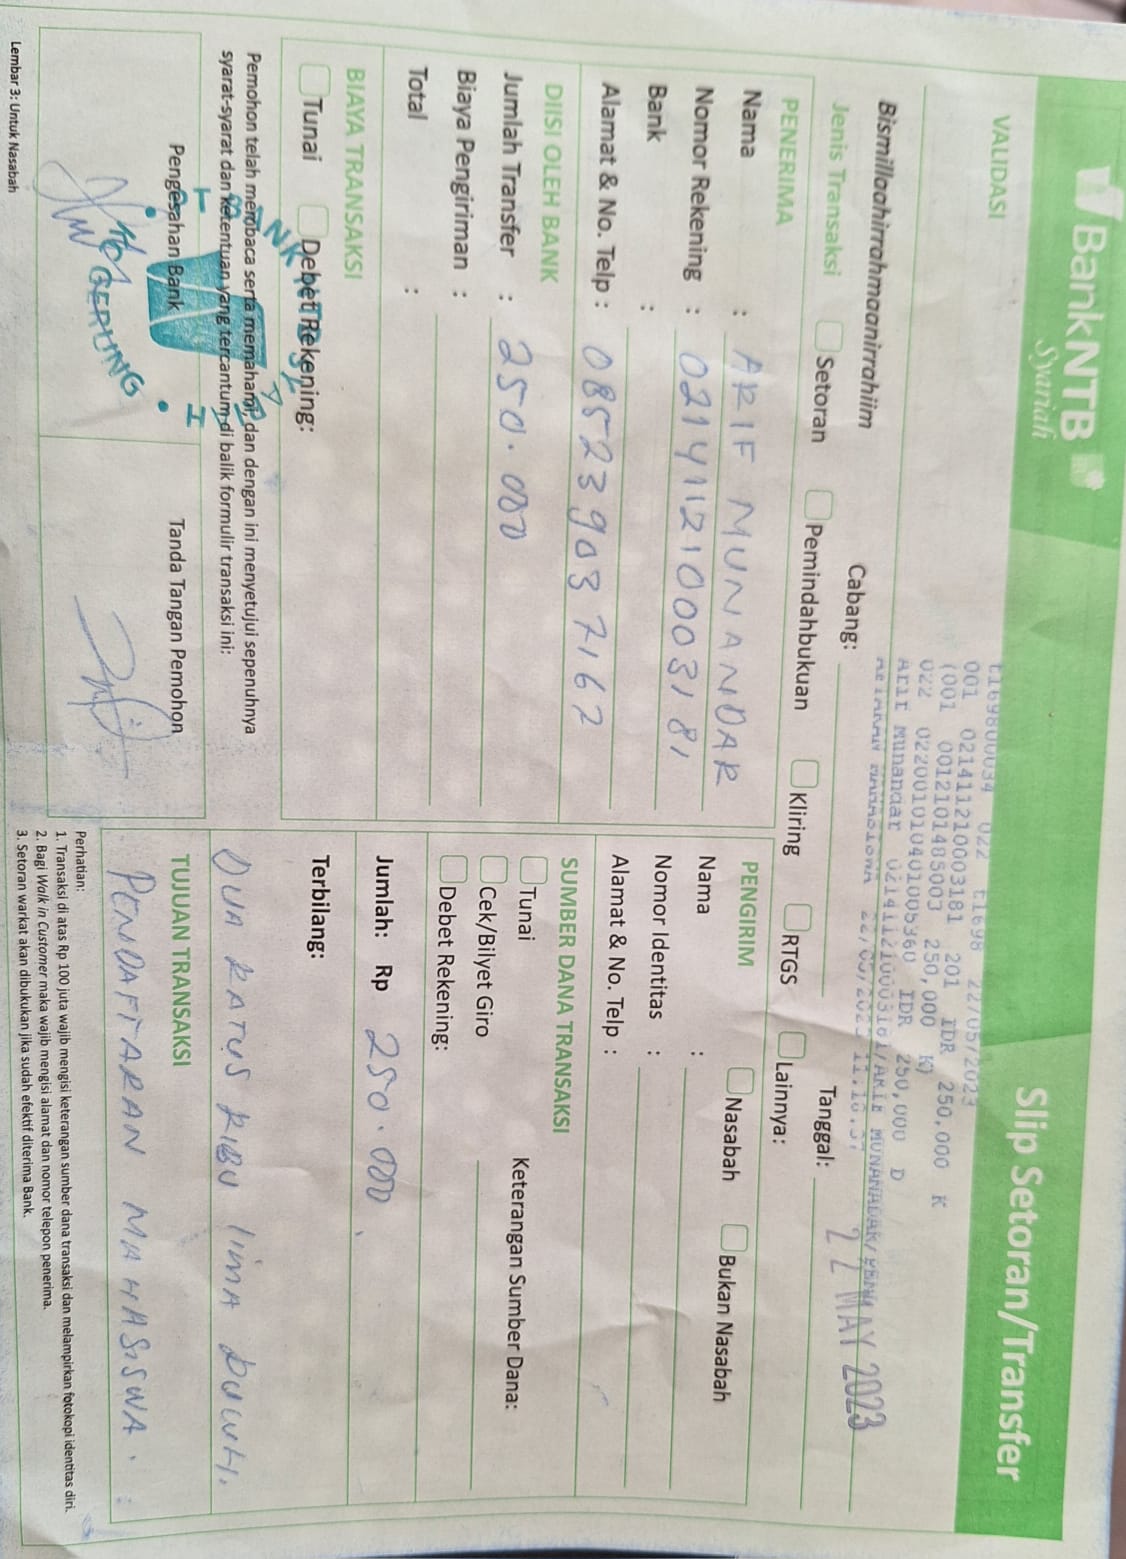 BankNTB
Syariah
Slip Setoran/Transfer
VALIDASI
t169800034 022 t1698 22/05/2023
001 0214112100003181 201 IDR 250,000 K
(001 0012101485003 250,000 K)
022 0220010104010005360 IDR 250,000 D
Arif Munandar 0214112100003181/ARIF MUNANDAR/
22/05/2023 11.16.37
Bismillaahirrahmaanirrahiim
Cabang:
Tanggal: 22 MAY 2023
Jenis Transaksi Setoran Pemindahbukuan Kliring RTGS Lainnya:
PENERIMA
Nama : ARIF MUNANDAR
Nomor Rekening : 0214112100003181
Bank :
Alamat & No. Telp : 085239037162
PENGIRIM Nasabah Bukan Nasabah
Nama :
Nomor Identitas :
Alamat & No. Telp :
DIISI OLEH BANK
Jumlah Transfer : 250.000
Biaya Pengiriman :
Total :
SUMBER DANA TRANSAKSI
Tunai Keterangan Sumber Dana:
Cek/Bilyet Giro
Debet Rekening:
BIAYA TRANSAKSI
Tunai Debet Rekening:
Jumlah: Rp 250.000
Terbilang:
DUA RATUS RIBU LIMA PULUH.
Pemohon telah membaca serta memahami dan dengan ini menyetujui sepenuhnya
syarat-syarat dan ketentuan yang tercantum di balik formulir transaksi ini:
Pengesahan Bank
GERUNG
Tanda Tangan Pemohon
TUJUAN TRANSAKSI
PENDAFTARAN MAHASISWA.
Perhatian:
1. Transaksi di atas Rp 100 juta wajib mengisi keterangan sumber dana transaksi dan melampirkan fotokopi identitas diri.
2. Bagi Walk in Customer maka wajib mengisi alamat dan nomor telepon penerima.
3. Setoran warkat akan dibukukan jika sudah efektif diterima Bank.
Lembar 3: Untuk Nasabah